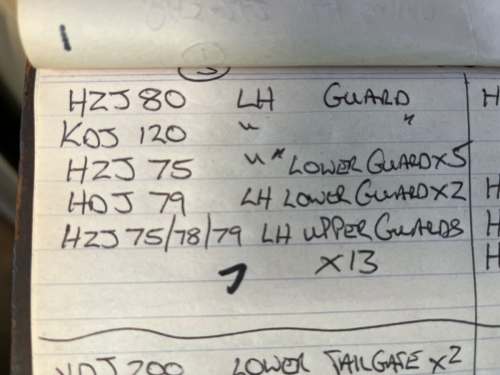 3
HZJ 80 LH GUARD H
KDJ 120 " "
HZJ 75 " " LOWER GUARD X5
HDJ 79 LH LOWER GUARD X2 H
HZJ 75/78/79 LH UPPER GUARDS H
X13 H
LOWER TAILGATE X2